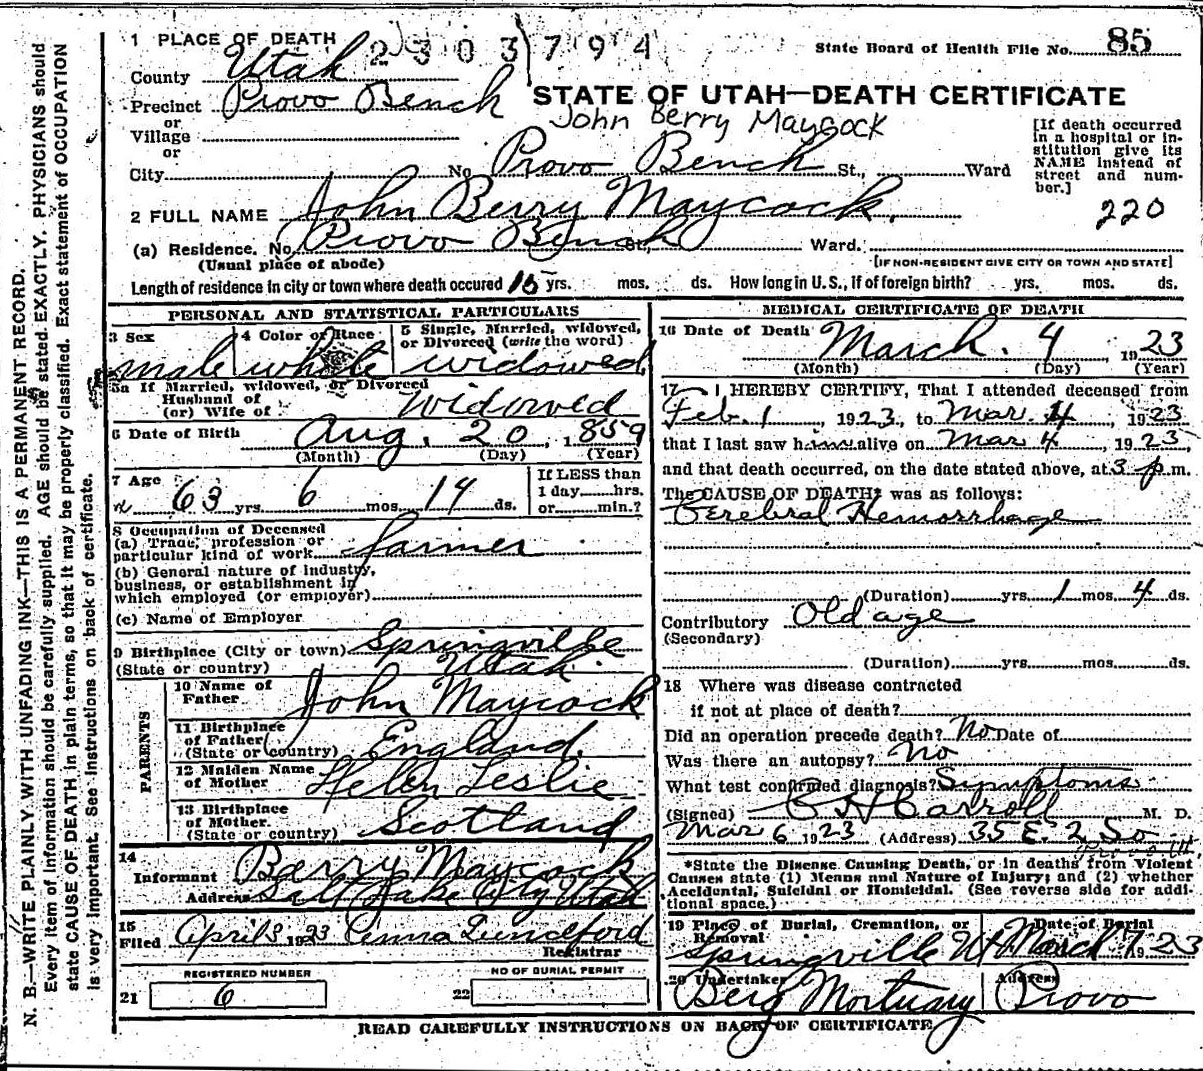 1 PLACE OF DEATH 2303794 State Board of Health File No. 85
County Utah
Precinct Provo Bench STATE OF UTAH—DEATH CERTIFICATE
or John Berry Maycock
Village
or
City No Provo Bench St., Ward
[If death occurred
in a hospital or in-
stitution give its
NAME instead of
street and num-
ber.]
220
2 FULL NAME John Berry Maycock.
(a) Residence. No. Provo Bench St., Ward.
(Usual place of abode) [IF NON-RESIDENT GIVE CITY OR TOWN AND STATE]
Length of residence in city or town where death occured 15 yrs. mos. ds. How long in U. S., if of foreign birth? yrs. mos. ds.
PERSONAL AND STATISTICAL PARTICULARS
3 Sex 4 Color or Race 5 Single, Married, widowed,
or Divorced (write the word)
male white widowed
5a If Married, widowed, or Divorced
Husband of
(or) Wife of Widowed
6 Date of Birth Aug. 20, 1859
(Month) (Day) (Year)
7 Age 63 yrs 6 mos. 14 ds.
If LESS than
1 day hrs.
or min.?
8 Occupation of Deceased
(a) Trade, profession or
particular kind of work farmer
(b) General nature of industry,
business, or establishment in
which employed (or employer)
(c) Name of Employer
9 Birthplace (City or town) Springville
(State or country) Utah.
PARENTS
10 Name of
Father John Maycock
11 Birthplace
of Father
(State or country) England.
12 Maiden Name
of Mother Helen Leslie
13 Birthplace
of Mother.
(State or country) Scotland
14
Informant Berry Maycock
Address Salt Lake City Utah
15
Filed April 3 1923 Anna Lunceford
Registrar
REGISTERED NUMBER NO OF BURIAL PERMIT
21 6 22
MEDICAL CERTIFICATE OF DEATH
16 Date of Death March. 4, 1923
(Month) (Day) (Year)
17 I HEREBY CERTIFY, That I attended deceased from
Feb. 1 1923, to Mar. 4, 1923
that I last saw him alive on Mar 4, 1923,
and that death occurred, on the date stated above, at 3 p.m.
The CAUSE OF DEATH* was as follows:
Cerebral Hemorrhage
(Duration) yrs. 1 mos. 4 ds.
Contributory Old age
(Secondary)
(Duration) yrs. mos. ds.
18 Where was disease contracted
if not at place of death?
Did an operation precede death? No Date of
Was there an autopsy? No
What test confirmed diagnosis? Symptoms
(Signed) C H Carroll M. D.
Mar 6 1923 (Address) 35 E. 2 So
*State the Disease Causing Death, or in deaths from Violent
Causes state (1) Means and Nature of Injury; and (2) whether
Accidental, Suicidal or Homicidal. (See reverse side for addi-
tional space.)
19 Place of Burial, Cremation, or Date of Burial
Removal
Springville Ut March 7, 1923
20 Undertaker Address
Berg Mortuary Provo
READ CAREFULLY INSTRUCTIONS ON BACK OF CERTIFICATE
N. B.—WRITE PLAINLY WITH UNFADING INK—THIS IS A PERMANENT RECORD.
Every item of information should be carefully supplied. AGE should be stated EXACTLY. PHYSICIANS should
state CAUSE OF DEATH in plain terms, so that it may be properly classified. Exact statement of OCCUPATION
is very important. See instructions on back of certificate.